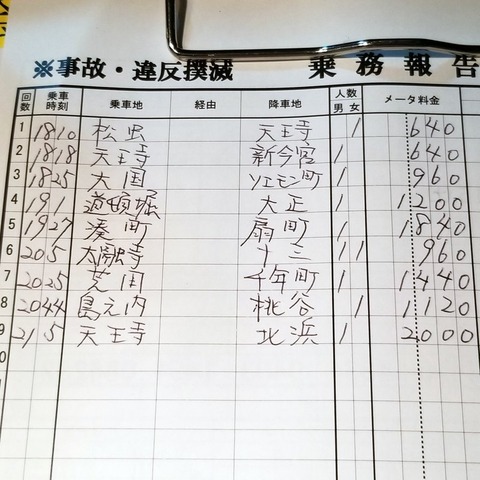 ※事故・違反撲滅 乗務報告
回数 乗車時刻 乗車地 経由 降車地 人数 男 女 メータ料金
1 1810 松虫 天王寺 1 640
2 1818 天王寺 新今宮 1 640
3 1825 大国 ソエモン町 1 960
4 191 道頓堀 大正 1 1200
5 1927 湊町 扇町 1 1840
6 205 太融寺 十三 1 1 960
7 2025 兎我野 千年町 1 1440
8 2044 島之内 桃谷 1 1120
9 21 5 天王寺 北浜 1 2000
0
1
2
3